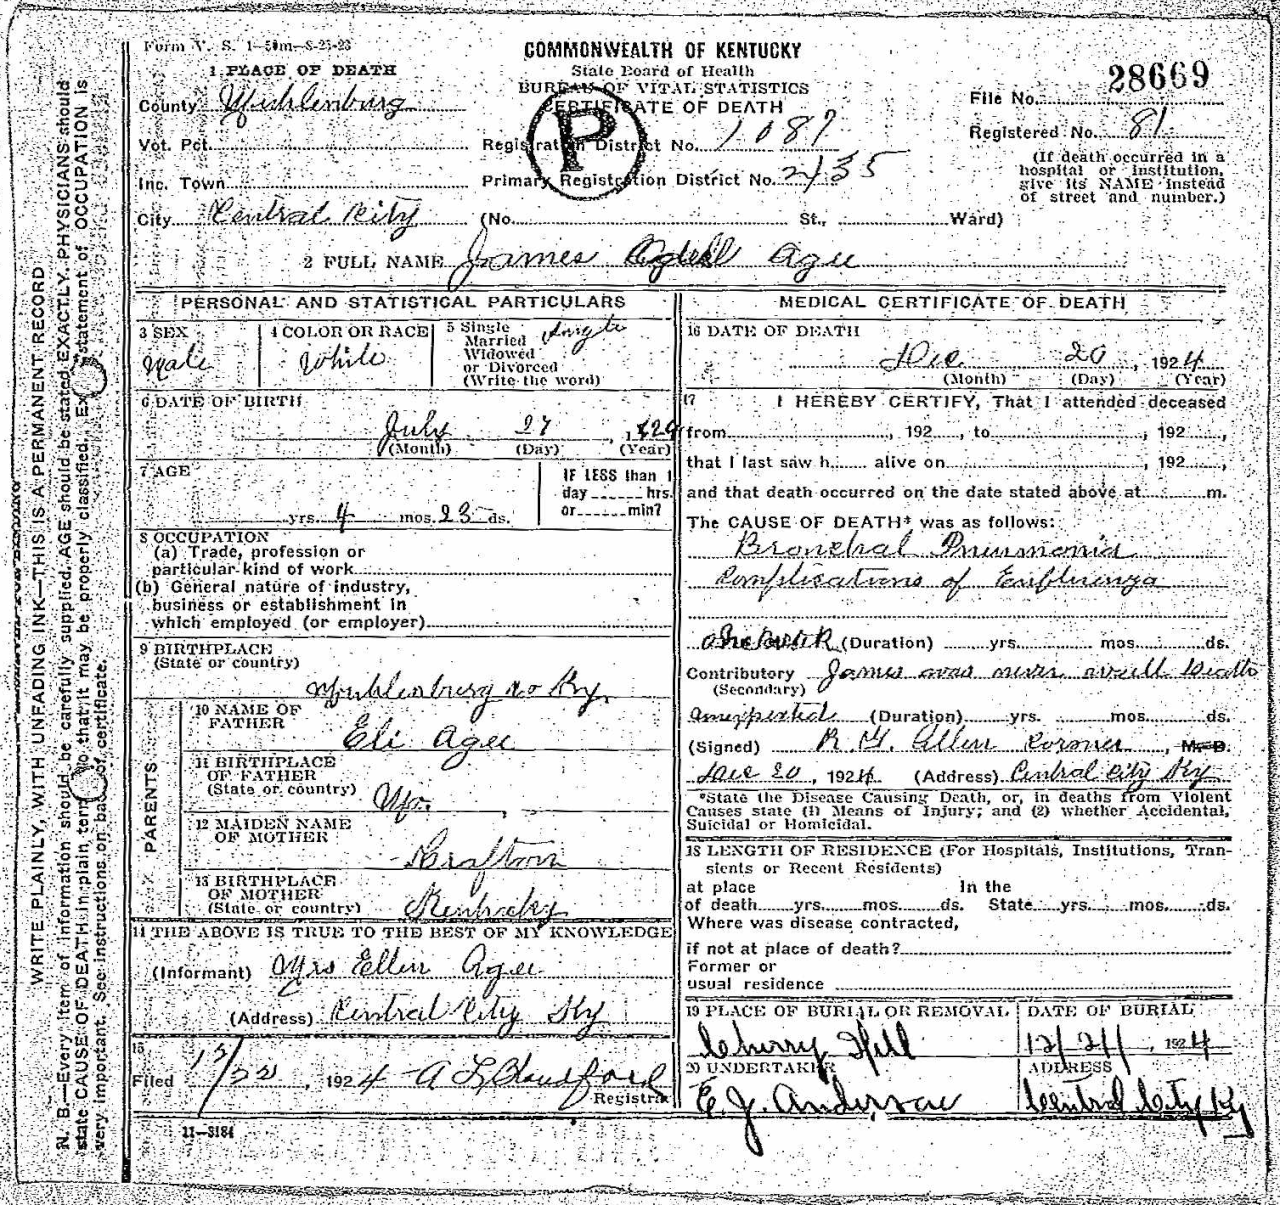 Form V. S. 1—50m—8-25-23
COMMONWEALTH OF KENTUCKY
State Board of Health
BUREAU OF VITAL STATISTICS
CERTIFICATE OF DEATH
P
28669
File No.
Registered No. 81
(If death occurred in a hospital or institution, give its NAME instead of street and number.)
1 PLACE OF DEATH
County Muhlenburg
Vot. Pct.
Registration District No. 1087
Inc. Town
Primary Registration District No. 2435
City Central City (No. St., Ward)
2 FULL NAME James Agee
PERSONAL AND STATISTICAL PARTICULARS
3 SEX
Male
4 COLOR OR RACE
White
5 Single
Married
Widowed
or Divorced
(Write the word)
Single
6 DATE OF BIRTH
July 27, 1924
(Month) (Day) (Year)
7 AGE
yrs. 4 mos. 23 ds.
IF LESS than 1
day hrs.
or min?
8 OCCUPATION
(a) Trade, profession or
particular kind of work
(b) General nature of industry,
business or establishment in
which employed (or employer)
9 BIRTHPLACE
(State or country)
Muhlenburg co Ky,
PARENTS
10 NAME OF
FATHER
Eli Agee
11 BIRTHPLACE
OF FATHER
(State or country)
12 MAIDEN NAME
OF MOTHER
13 BIRTHPLACE
OF MOTHER
(State or country) Kentucky
14 THE ABOVE IS TRUE TO THE BEST OF MY KNOWLEDGE
(Informant) Mrs Ellen Agee
(Address) Central City Ky
15
Filed 12/22, 1924
Registrar
11—3184
MEDICAL CERTIFICATE OF DEATH
16 DATE OF DEATH
Dec 20, 1924
(Month) (Day) (Year)
17 I HEREBY CERTIFY, That I attended deceased
from , 192 , to , 192 ,
that I last saw h alive on , 192 ,
and that death occurred on the date stated above at m.
The CAUSE OF DEATH* was as follows:
Bronchal Pneumonia
Complications of Enfluenza
(Duration) yrs. mos. ds.
Contributory James was never well Death
(Secondary)
unexpected (Duration) yrs. mos. ds.
(Signed) Allen Coroner, M. D.
Dec 20, 1924 (Address) Central City Ky
*State the Disease Causing Death, or, in deaths from Violent
Causes state (1) Means of Injury; and (2) whether Accidental,
Suicidal or Homicidal.
18 LENGTH OF RESIDENCE (For Hospitals, Institutions, Tran-
sients or Recent Residents)
at place In the
of death yrs. mos. ds. State yrs. mos. ds.
Where was disease contracted,
if not at place of death?
Former or
usual residence
19 PLACE OF BURIAL OR REMOVAL
Cherry Hill
DATE OF BURIAL
12/21, 1924
20 UNDERTAKER
E. J. Anderson
ADDRESS
Central City Ky
WRITE PLAINLY, WITH UNFADING INK—THIS IS A PERMANENT RECORD
N. B.—Every item of information should be carefully supplied. AGE should be stated EXACTLY. PHYSICIANS should
state CAUSE OF DEATH in plain terms so that it may be properly classified. Exact statement of OCCUPATION is
very important. See instructions on back of certificate.